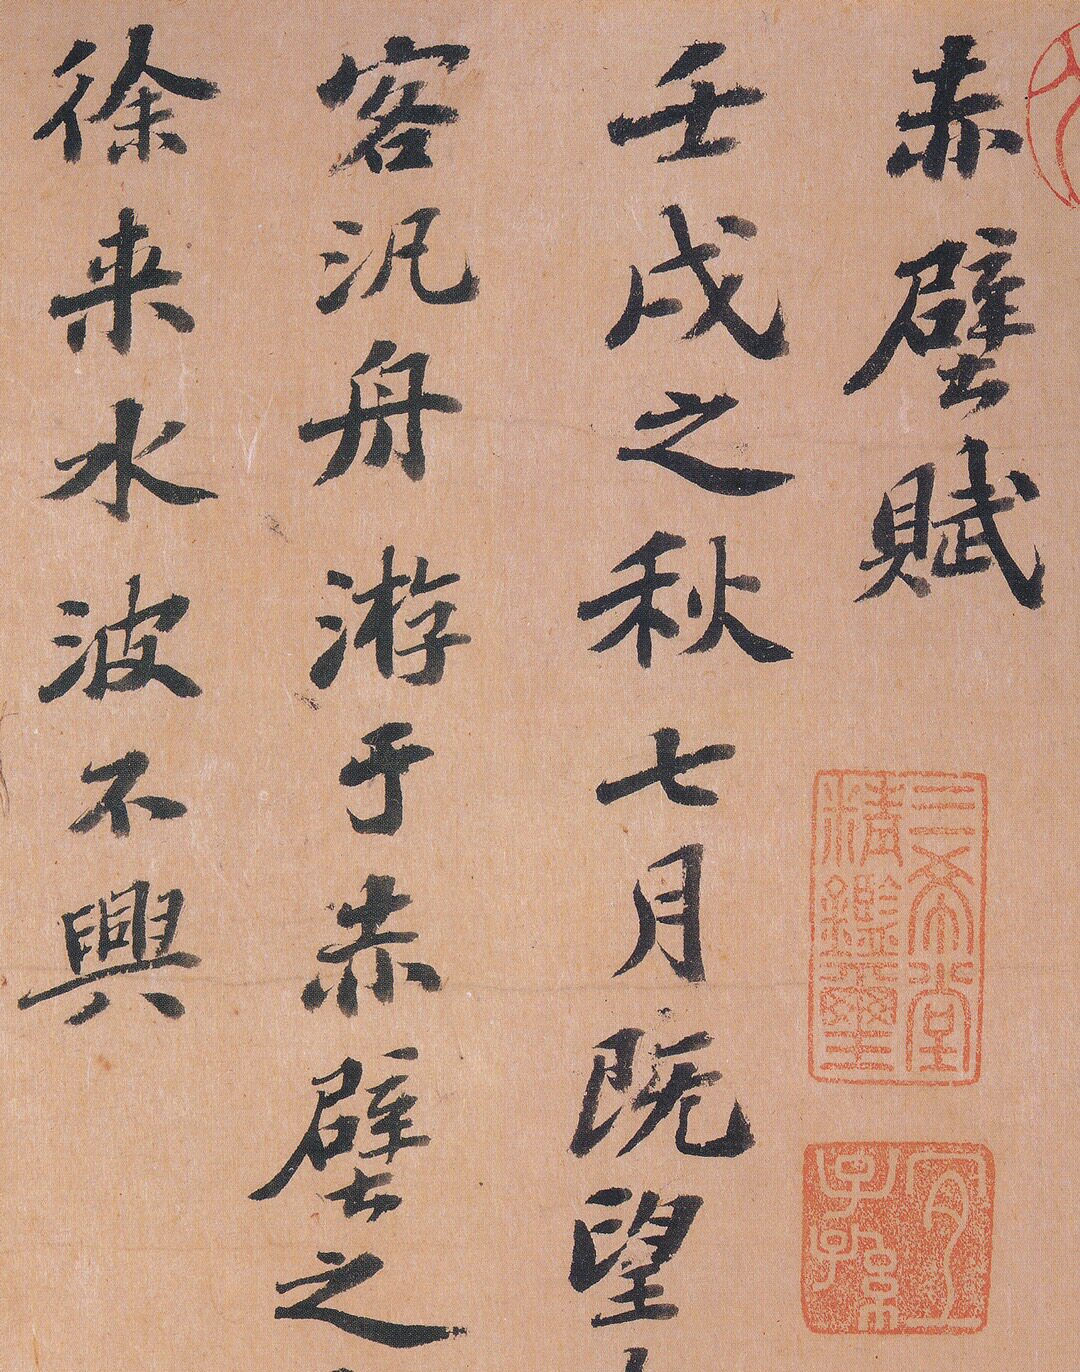 赤壁賦
壬戌之秋七月既望
客汎舟游于赤壁之
徐来水波不興
三希堂
精鑑璽
宜
子孫